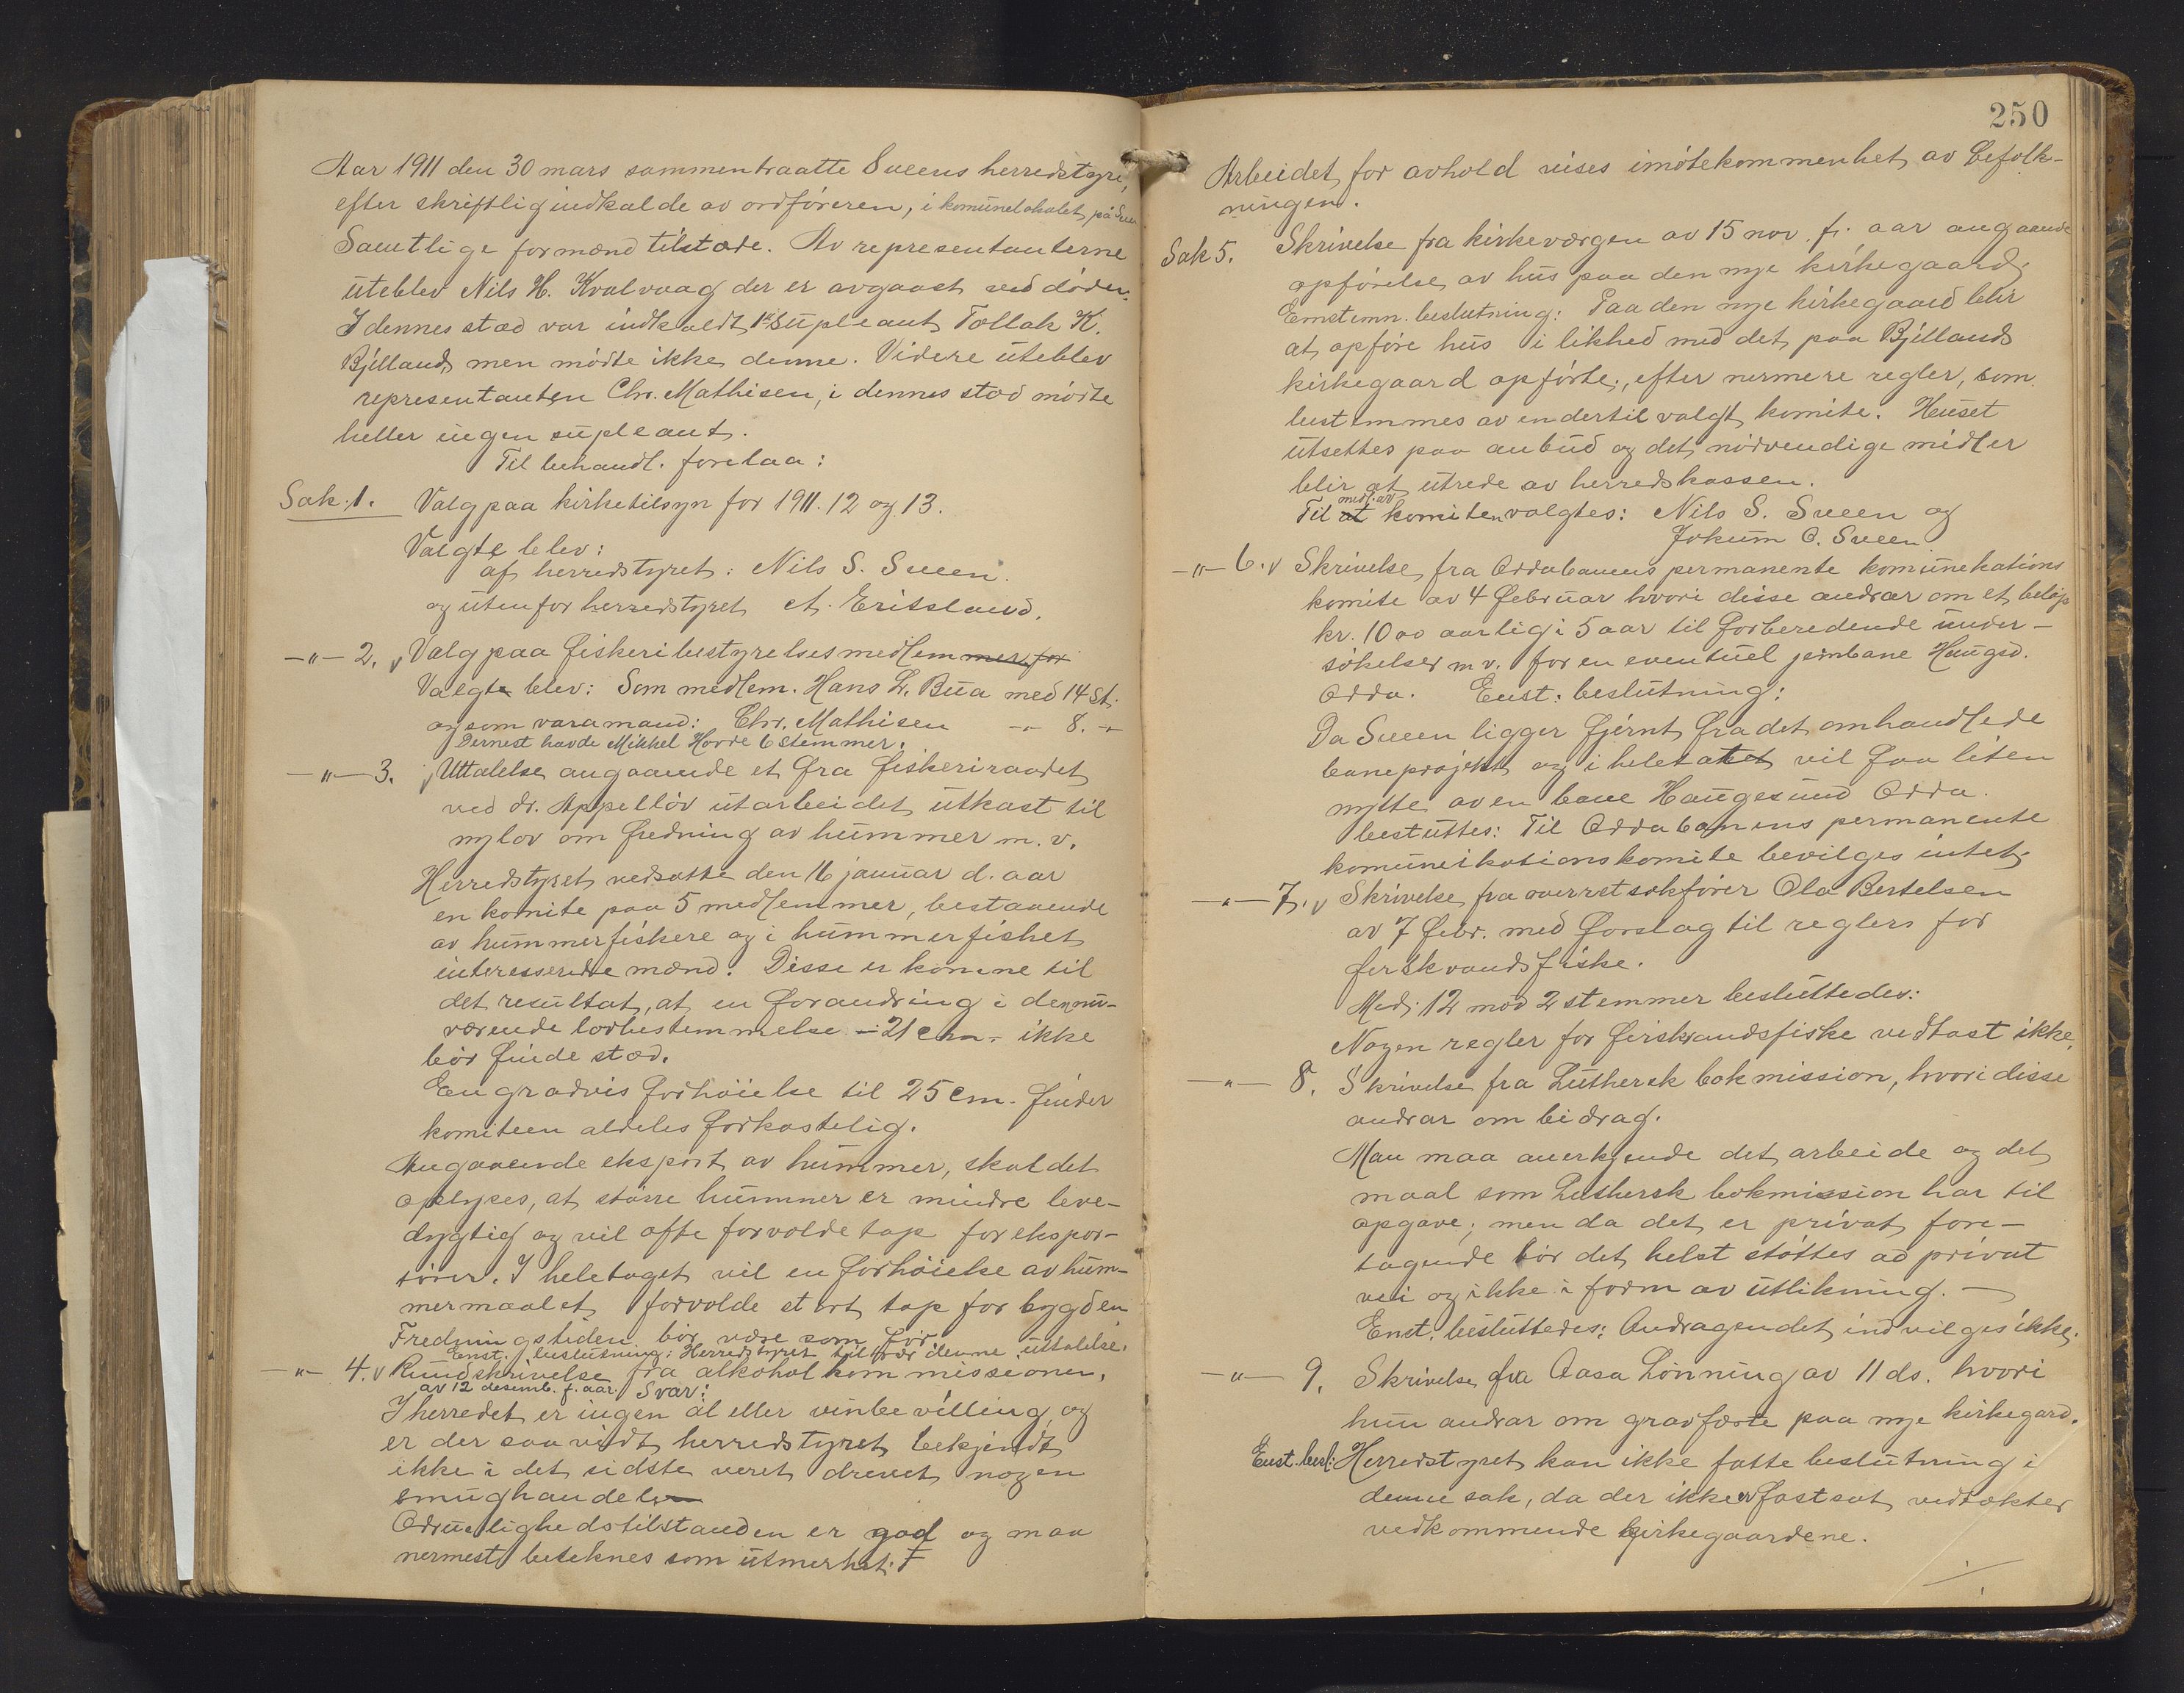 Aar 1911 den 30 mars sammentraatte Sveens herredstyre,
efter skriftlig indkalde av ordføreren, i komunelokalet på Sveen
Samtlige formænd tilstæde. Av representanterne
uteblev Nils H. Kvalvaag der er avgaaet ved døden.
I dennes stæd var indkaldt 1ste supleant Tollak K.
Bjelland, men mødte ikke denne. Videre uteblev
representanten Chr. Mathisen, i dennes stæd mødte
heller ingen supleant.
Til behandl. forelaa:
Sak 1. Valg paa kirketilsyn for 1911. 12 og 13.
Valgte blev:
af herredstyret: Nils S. Sveen.
og utenfor herredstyret A. Eritsland.
-"- 2. Valg paa fiskeribestyrelsesmedlemmer for
Valgte blev: Som medlem. Hans L. Bua med 14 st.
og som varamand: Chr. Mathisen -"- 8. -"-
Dernest havde Mikkel Hovde 6 stemmer.
-"- 3. Uttalelse angaaende et fra fiskeriraadet
ved dr. Appelløv utarbeidet utkast til
ny lov om fredning av hummer m. v.
Herredstyret nedsatte den 16 januar d. aar
en komite paa 5 medlemmer, bestaaende
av hummerfiskere og i hummerfisket
interesserede mænd. Disse er komne til
det resultat, at en forandring i den nu-
værende lovbestemmelse - 21 cm - ikke
bør finde stæd.
En gradvis forhøielse til 25 cm. finder
komiteen aldeles forkastelig.
Angaaende eksport av hummer, skal det
oplyses, at større hummer er mindre leve-
dygtig og vil ofte forvolde tap for ekspor-
tører. I heletaget vil en forhøielse av hum-
mermaalet forvolde stort tap for bygden
Fredningstiden bør være som før.
Enst. beslutning: Herredstyret tiltrær denne uttalelse.
-"- 4. Rundskrivelse fra alkoholkommissionen,
av 12 desemb. f. aar. Svar:
I herredet er ingen øl eller vinbevilling, og
er der saavidt herredstyret bekjendt
ikke i det sidste veret drevet nogen
smughandel.
Ædruelighedstilstanden er god og maa
nermest beteknes som utmerket. F
250
Arbeidet for avhold vises imøtekommenhet av befolk-
ningen.
Sak 5. Skrivelse fra kirkeværgen av 15 nov. f. aar angaaende
opførelse av hus paa den nye kirkegaard.
Enstemn. beslutning: Paa den nye kirkegaard blir
at opføre hus i likhed med det paa Bjellands
kirkegaard opførte, efter nermere regler, som
bestemmes av en dertil valgt komite. Huset
utsettes paa anbud og det nødvendige midler
blir at utrede av herredskassen.
Til medl. av komiten valgtes: Nils S. Sveen og
Jokum O. Sveen.
-"- 6. Skrivelse fra Oddabanens permanente komunekations
komite av 4 februar hvori disse andrar om et beløp
kr. 1000 aarlig i 5 aar til forberedende under-
søkelser m v. for en eventuel jernbane Haugsd.
Odda. Enst. beslutning:
Da Sveen ligger fjernt fra det omhandlede
baneprojekt og i heletatet vil faa liten
nytte av en bane Haugesund Odda.
besluttes: Til Oddabanens permanente
komunikationskomite bevilges intet.
-"- 7. Skrivelse fra overretsakfører Ola Bertelsen
av 7 febr. med forslag til reglers for
ferskvandsfiske.
Med 12 mod 2 stemmer besluttedes:
Nogen regler for ferskvandsfiske vedtast ikke.
-"- 8. Skrivelse fra Luthersk bokmission, hvori disse
andrar om bidrag.
Man maa anerkjende det arbeide og det
maal som Luthersk bokmission har til
opgave; men da det er privat fore-
tagende bør det helst støttes ad privat
vei og ikke i form av utlikning. —
Enst. besluttedes: Andragendet indvilges ikke.
-"- 9. Skrivelse fra Aasa Lønning av 11 ds. hvori
hun andrar om gravfæste paa nye kirkegard.
Enst. besl: Herredstyret kan ikke fatte beslutning i
denne sak, da der ikke er fastsat vedtækter
vedkommende kirkegaardene.